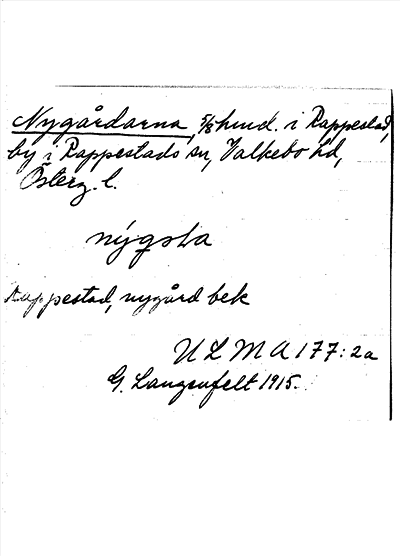 Nygårdarna, 5/8 hmd. i Rappestad,
by i Rappestads sn, Valkebo hd,
Österg. l.
nýgsta
Rappestad, nygård bek
ULMA 177:2a
G. Langenfelt 1915.